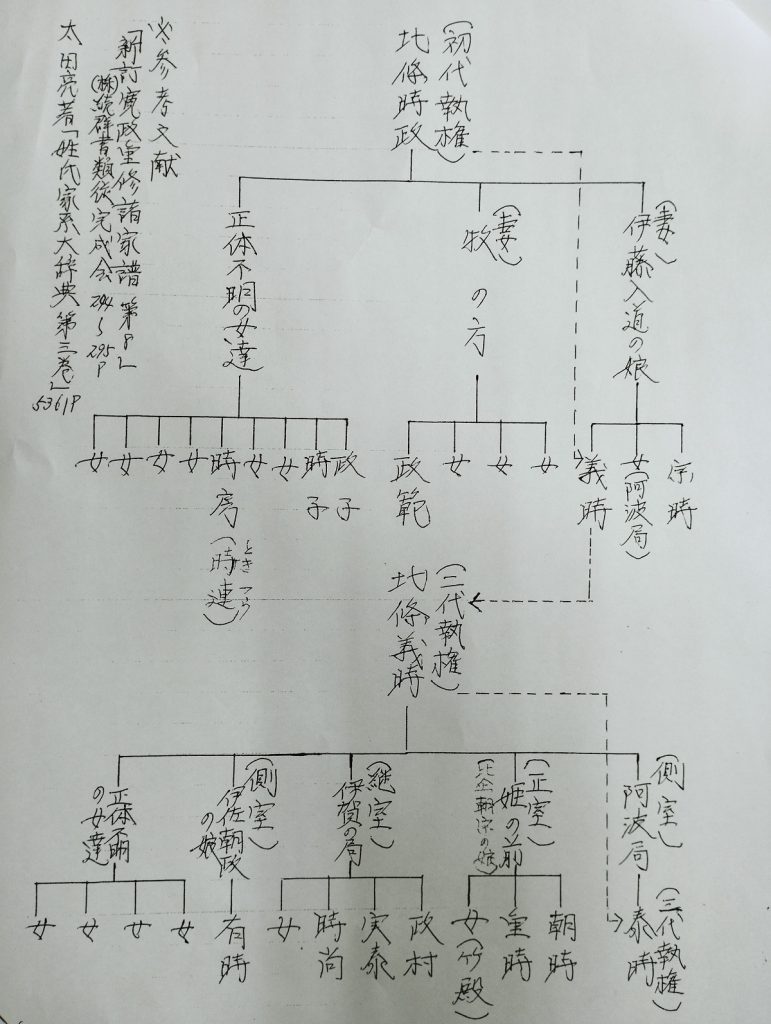 (初代執権)
北條時政
(妻)
伊藤入道の娘
(妻)
牧の方
正体不明の女達
宗時
女(阿波局)
義時
女
女
女
政範
政子
時子
女
女
時房(時連)
ときつら
女
女
女
女
(二代執権)
北條義時
(側室)
阿波局
(正室)
姫の前
(比企朝宗の娘)
(継室)
伊賀の局
(側室)
伊佐朝政
の娘
正体不明
の女達
(三代執権)
泰時
朝時
重時
女(竹殿)
政村
実泰
時尚
女
有時
女
女
女
女
※参考文献
「新訂寛政重修諸家譜 第8」
(株)続群書類従完成会 294〜295P
太田亮著「姓氏家系大辞典 第三巻」
5361P